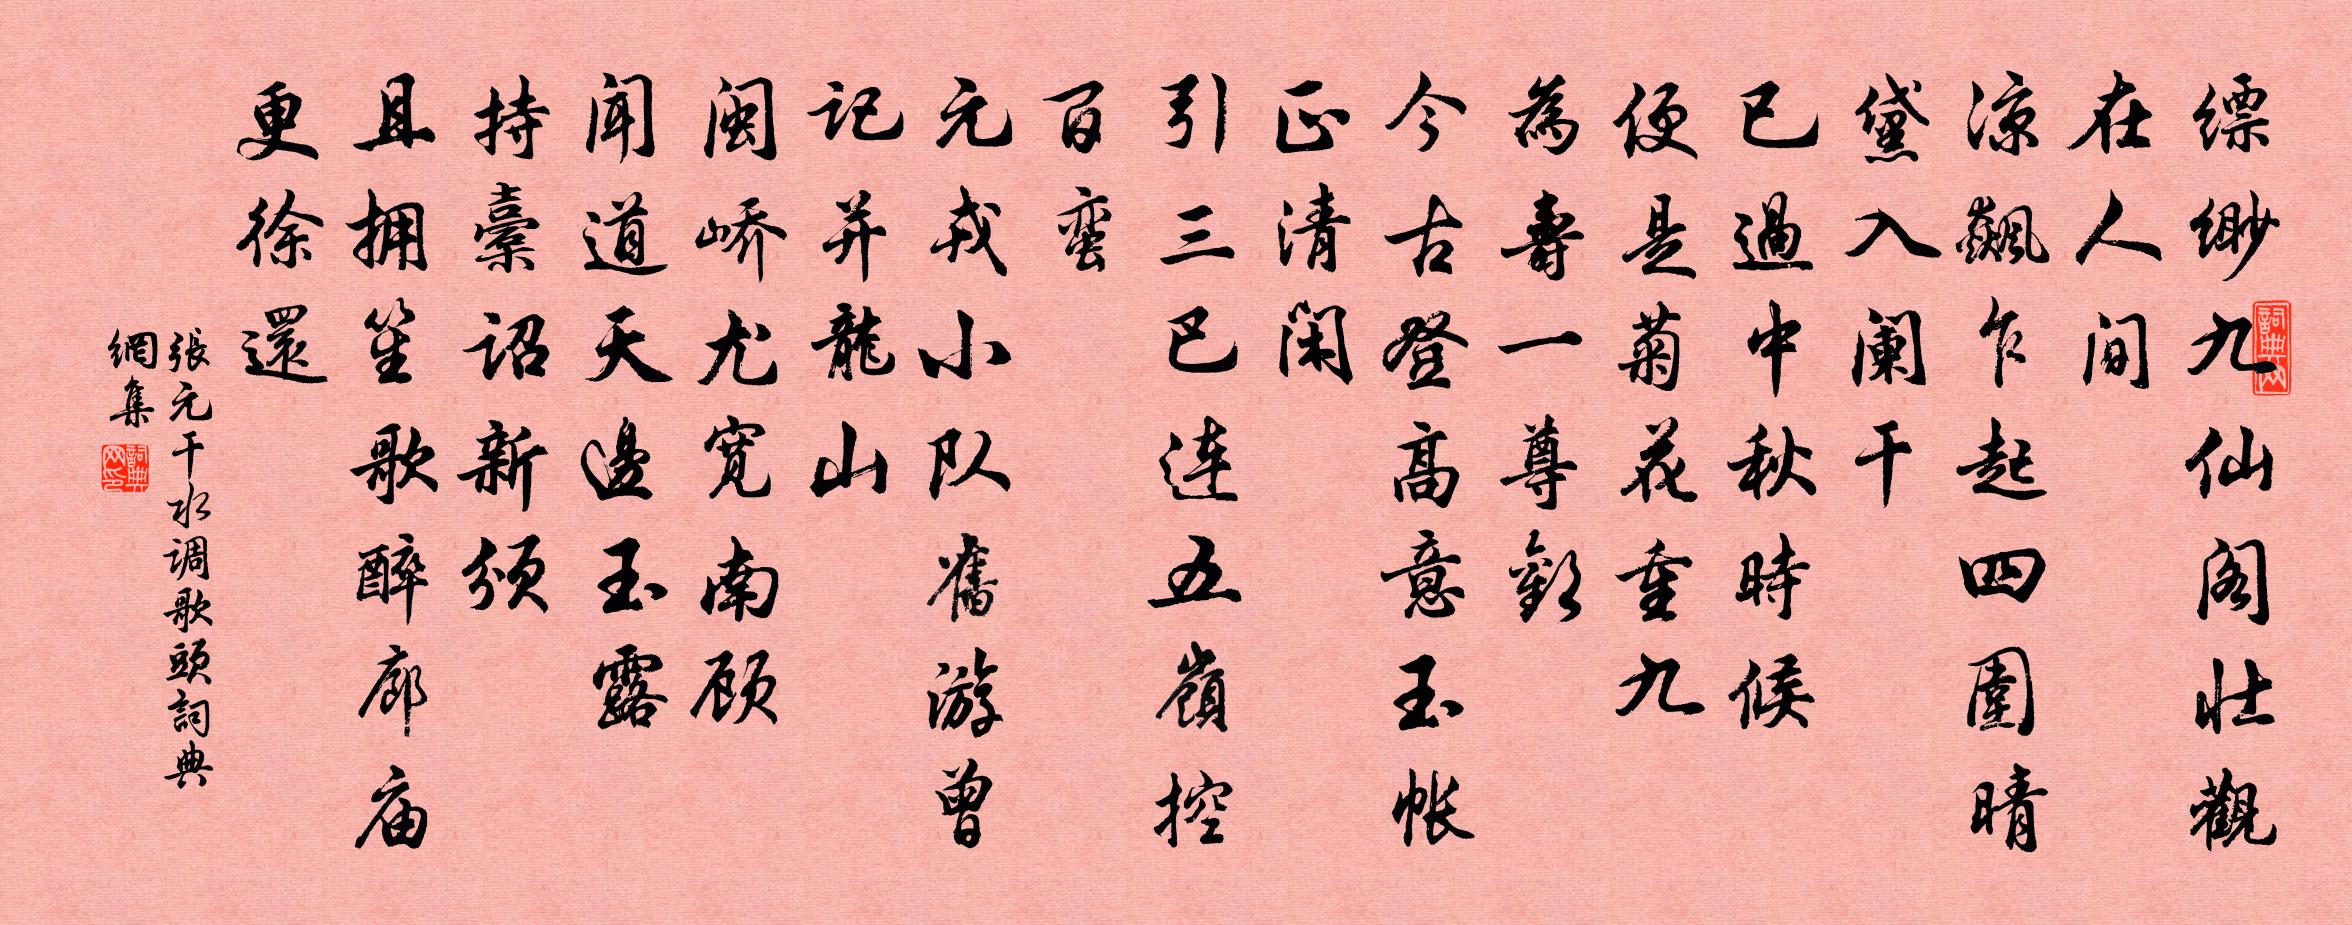 缥缈九仙阁壮觀
在人间
凉飆乍起四圍晴
黛入阑干
已過中秋時候
便是菊花重九
為壽一尊歡
今古登高意玉帐
正清闲
引三巴连五嶺控
百蛮
元戎小队舊游曾
记并龍山
闽峤尤宽南顾
闻道天邊玉露
持橐诏新颁
且拥笙歌醉廊庙
更徐還
張元干水调歌頭詞典
網集
詞典网
詞典网印